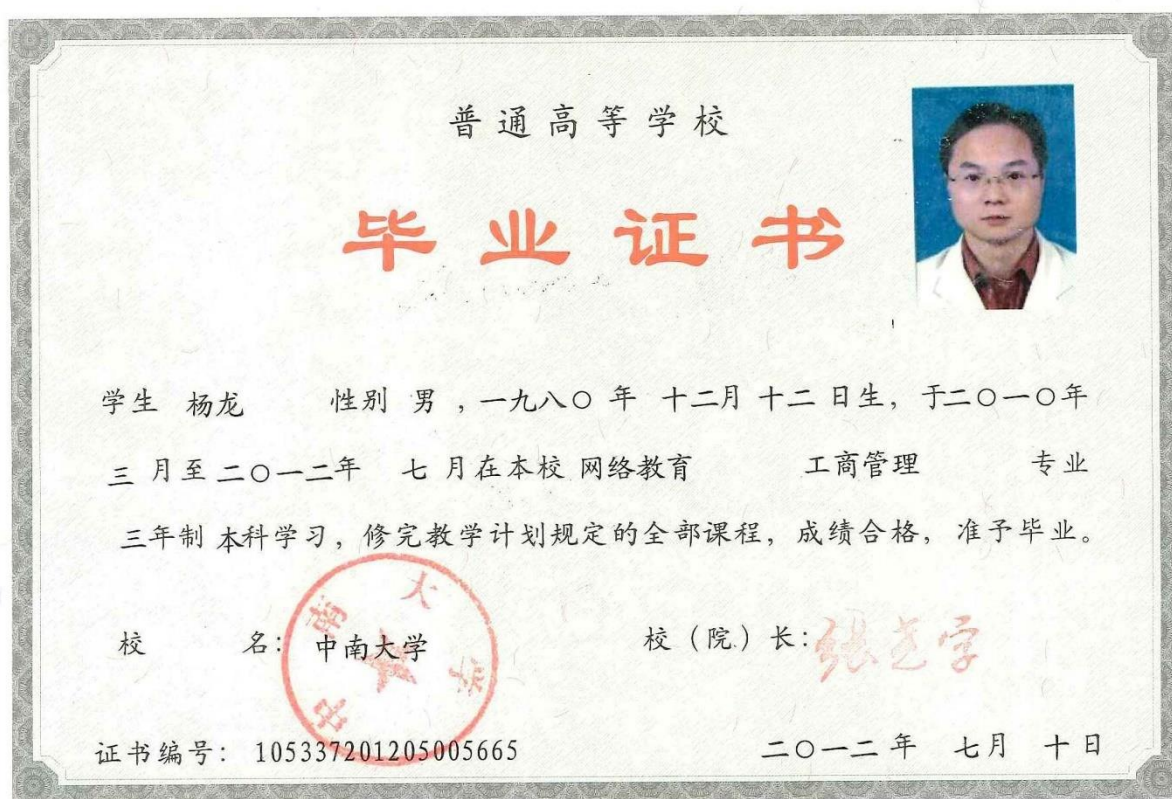 普通高等学校
毕业证书
学生 杨龙 性别 男 ，一九八〇 年 十二月 十二 日生，于二〇一〇年
三 月至 二〇一二年 七 月在本校 网络教育 工商管理 专业
三年制 本科学习，修完教学计划规定的全部课程，成绩合格，准予毕业。
校 名： 中南大学
中南大学
校（院）长：张尧学
证书编号：105337201205005665
二〇一二年 七月 十日